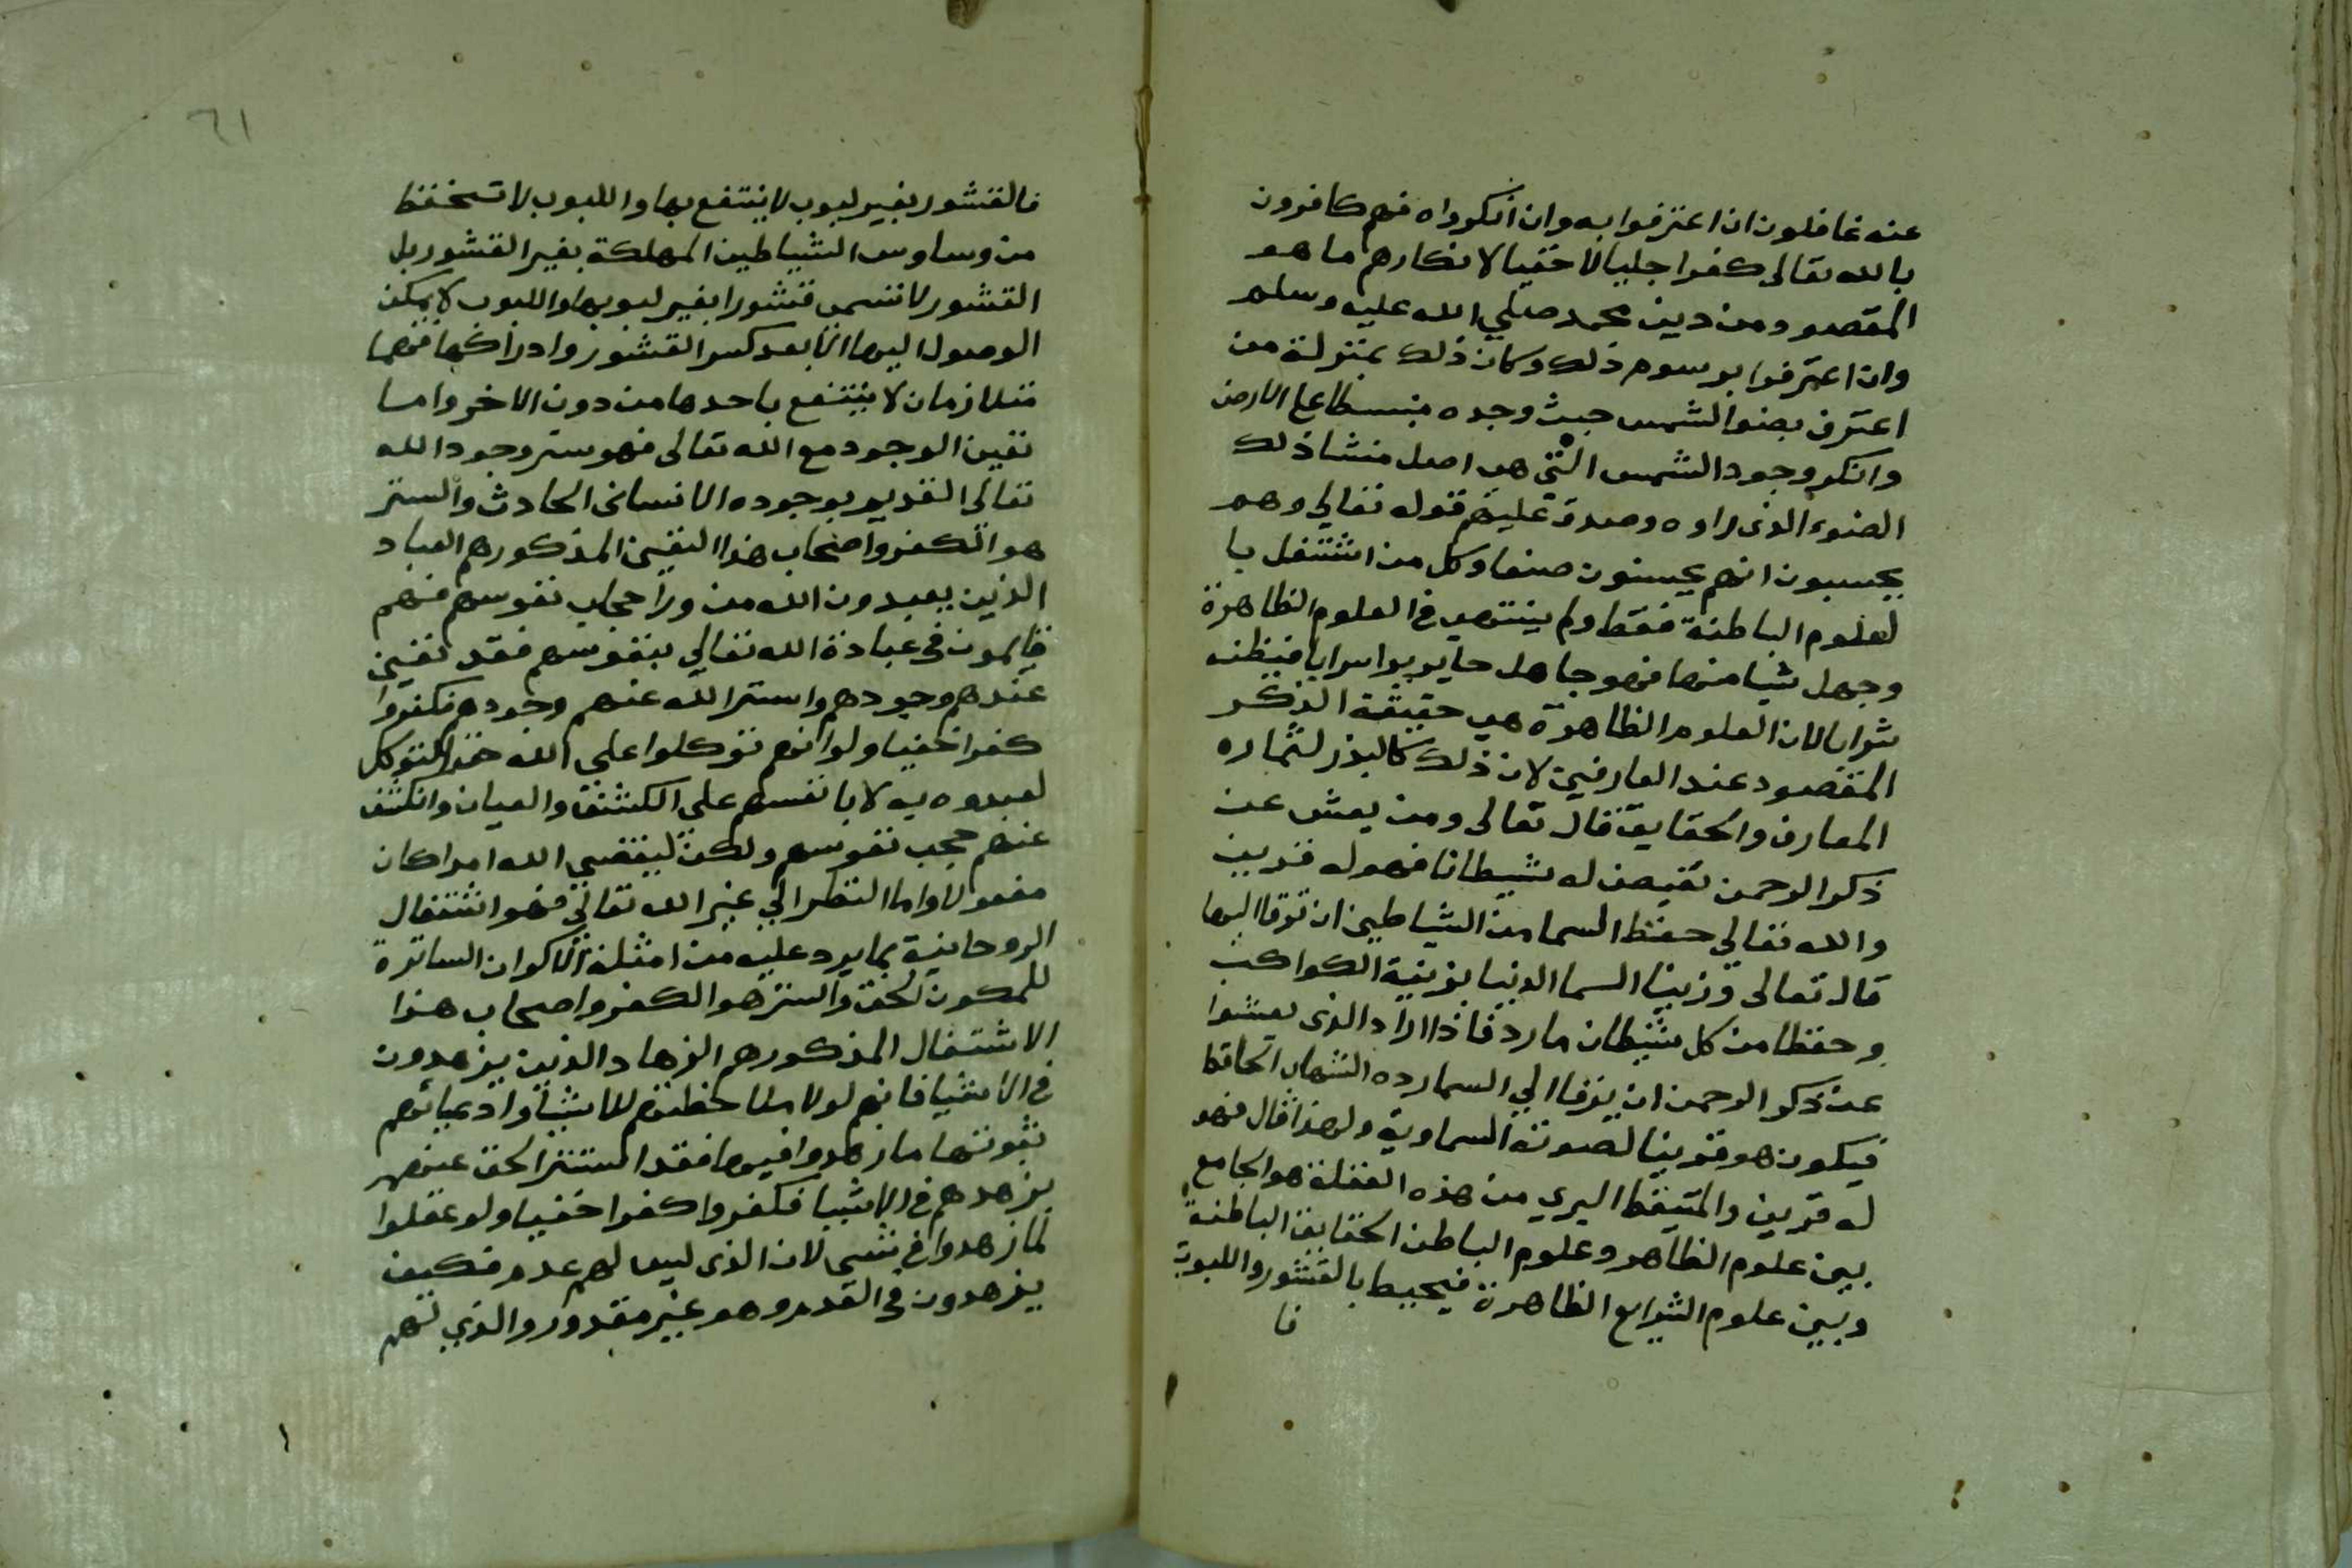 عنه غافلون ان اعترفوا به وان انكروا ه فهم كافرون
بالله تعالى كفرا جليا لا خفيا لانكارهم ما هو
المقصود من دين محمد صلي الله عليه وسلم
وان اعترفوا برسوم ذلك وكان ذلك بمنزلة من
اعترف بضوا الشمس حيث وجده منبسطا على الارض
وانكر وجود الشمس التي هي اصل منشا ذلك
الضوء الذى راوه وصدق عليهم قوله تعالي وهم
يحسبون انهم يحسنون صنعا وكل من اشتغل با
لعلوم الباطنة فقط ولم ينتهي في العلوم الظاهرة
وجهل شيا منها فهو جاهل حاير يرا سرابا فيظنه
شرابا لان العلوم الظاهرة هي حقيقة الذكر
المقصود عند العارفين لان ذلك كالبذر لثماره
المعارف والحقايق قال تعالى ومن يعش عن
ذكر الرحمن نقيض له شيطانا فهو له قرين
والله تعالي حفظ السما من الشياطين ان ترقا اليها
قال تعالى وزينا السما الدنيا بزينة الكواكب
وحفظا من كل شيطان مارد فاذا اراد الذى يعشوا
عن ذكر الرحمن ان يرقا الي السما رده الشهاب الحافظ
فيكون هو قرينا لصونه السماوية ولهذا قال فهو
له قرين والمتيقظ البري من هذه الغفلة هو الجامع
بين علوم الظاهر وعلوم الباطن الحقايق الباطنة
وبين علوم الشرايع الظاهرة فيحيط بالقشور واللبوب
فا
٦١
فالقشور بغير لبوب لا ينتفع بها واللبوب لا تتحفظ
من وساوس الشياطين المهلكة بغير القشور بل
القشور لا تسمى قشورا بغير لبوبها واللبوب لا يمكن
الوصول اليها الا بعد كسر القشور وادراكها فهما
متلازمان لا ينتفع باحدها من دون الاخر واما
تعين الوجود مع الله تعالى فهو ستر وجود الله
تعالى القديم بوجوده الانسانى الحادث والستر
هو الكفر واصحاب هذا التعين المذكور هم العباد
الذين يعبدون الله من ورا حجاب نفوسهم فهم
قايمون في عبادة الله تعالي بنفوسهم فقد تعين
عندهم وجودهم واستتر الله عنهم وجودهم فكفروا
كفرا خفيا ولو انهم توكلوا علي الله حق التوكل
لعبدوه به لا بانفسهم على الكشف والعيان وانكشف
عنهم حجب نفوسهم ولكن ليقضي الله امرا كان
مفعولا واما النظر الي غير الله تعالي فهو اشتغال
الروحانية بما يرد عليه من امثلة الاكوان الساترة
للمكون الحق والستر هو الكفر واصحاب هذا
الاشتغال المذكور هم الزهاد الذين يزهدون
في الاشيا فانهم لولا ملاحظتهم للاشيا وادعيائهم
ثبوتها ما زهدوا فيها فقد استتر الحق عنهم
بزهدهم في الاشيا فكفروا كفرا خفيا ولو عقلوا
لما زهدوا في شى لان الذى ليس لهم عدم فكيف
يزهدون في العدم وهو غير مقدور والذي لهم